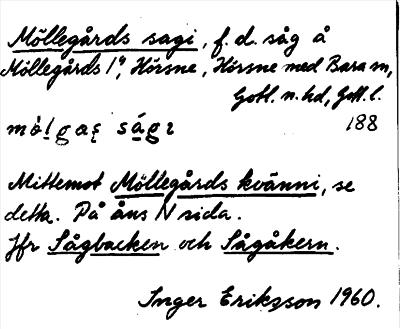 Möllegårds sagi, f. d. såg å
Möllegårds 1⁴, Hörsne, Hörsne med Bara sn,
Gotl. n. hd, Gotl. l.
188
Mittemot Möllegårds kvänni, se
detta. På åns N sida.
Jfr Sågbacken och Sågåkern.
Inger Eriksson 1960.